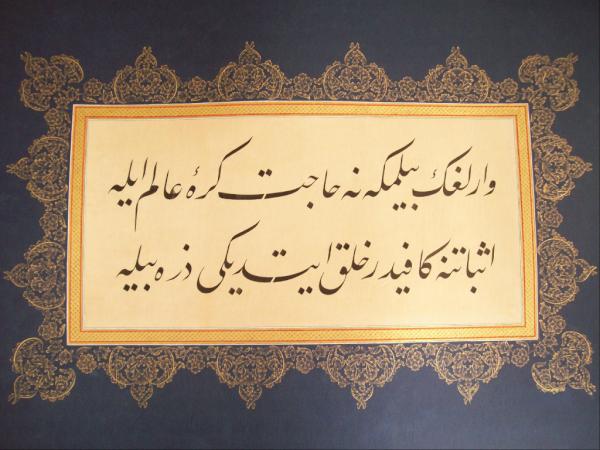 وارلغڭ بیلمكه نه حاجت كرۀ عالم ایله
اثباتنه كافیدر خلق ایتدیكی ذره بیله